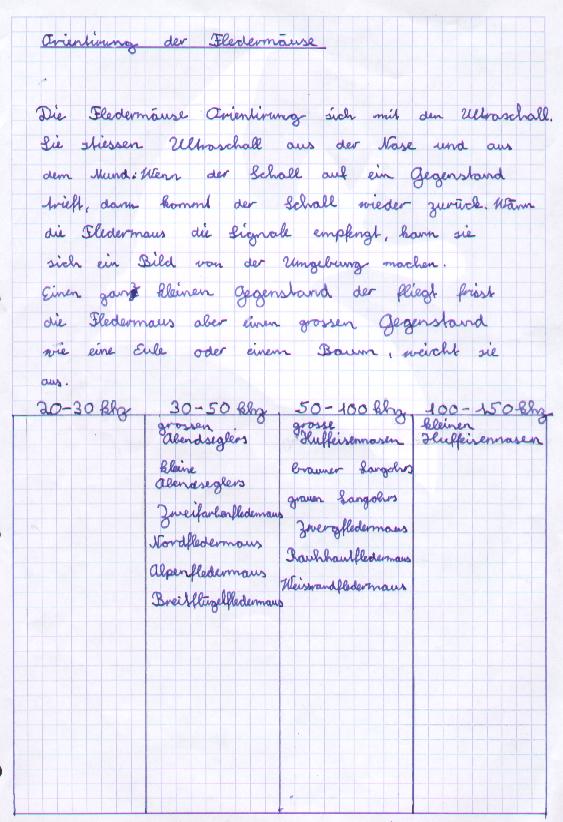 Orientirung der Fledermäuse
Die Fledermäuse Orientirung sich mit den Ultraschall.
Sie stiessen Ultraschall aus der Nase und aus
dem Mund. Wenn der Schall auf ein Gegenstand
trieft, dann kommt der Schall wieder zurück. Wänn
die Fledermaus die Signale empfengt, kann sie
sich ein Bild von der Umgebung machen.
Einen ganz kleinen Gegenstand der fliegt frisst
die Fledermaus aber einen grossen Gegenstand
wie eine Eule oder einem Baum, weicht sie
aus.
20-30 khz 30-50 khz 50-100 khz 100-150 khz
grossen grosse kleinen
Abendseglers Huffeisennasen Huffeisennasen
kleine brauner Langohrs
Abendseglers
grauen Langohrs
Zweifarbenfledermaus
Zwergfledermaus
Nordfledermaus
Rauhhautfledermaus
Alpenfledermaus
Weissrandfledermaus
Breitflügelfledermaus